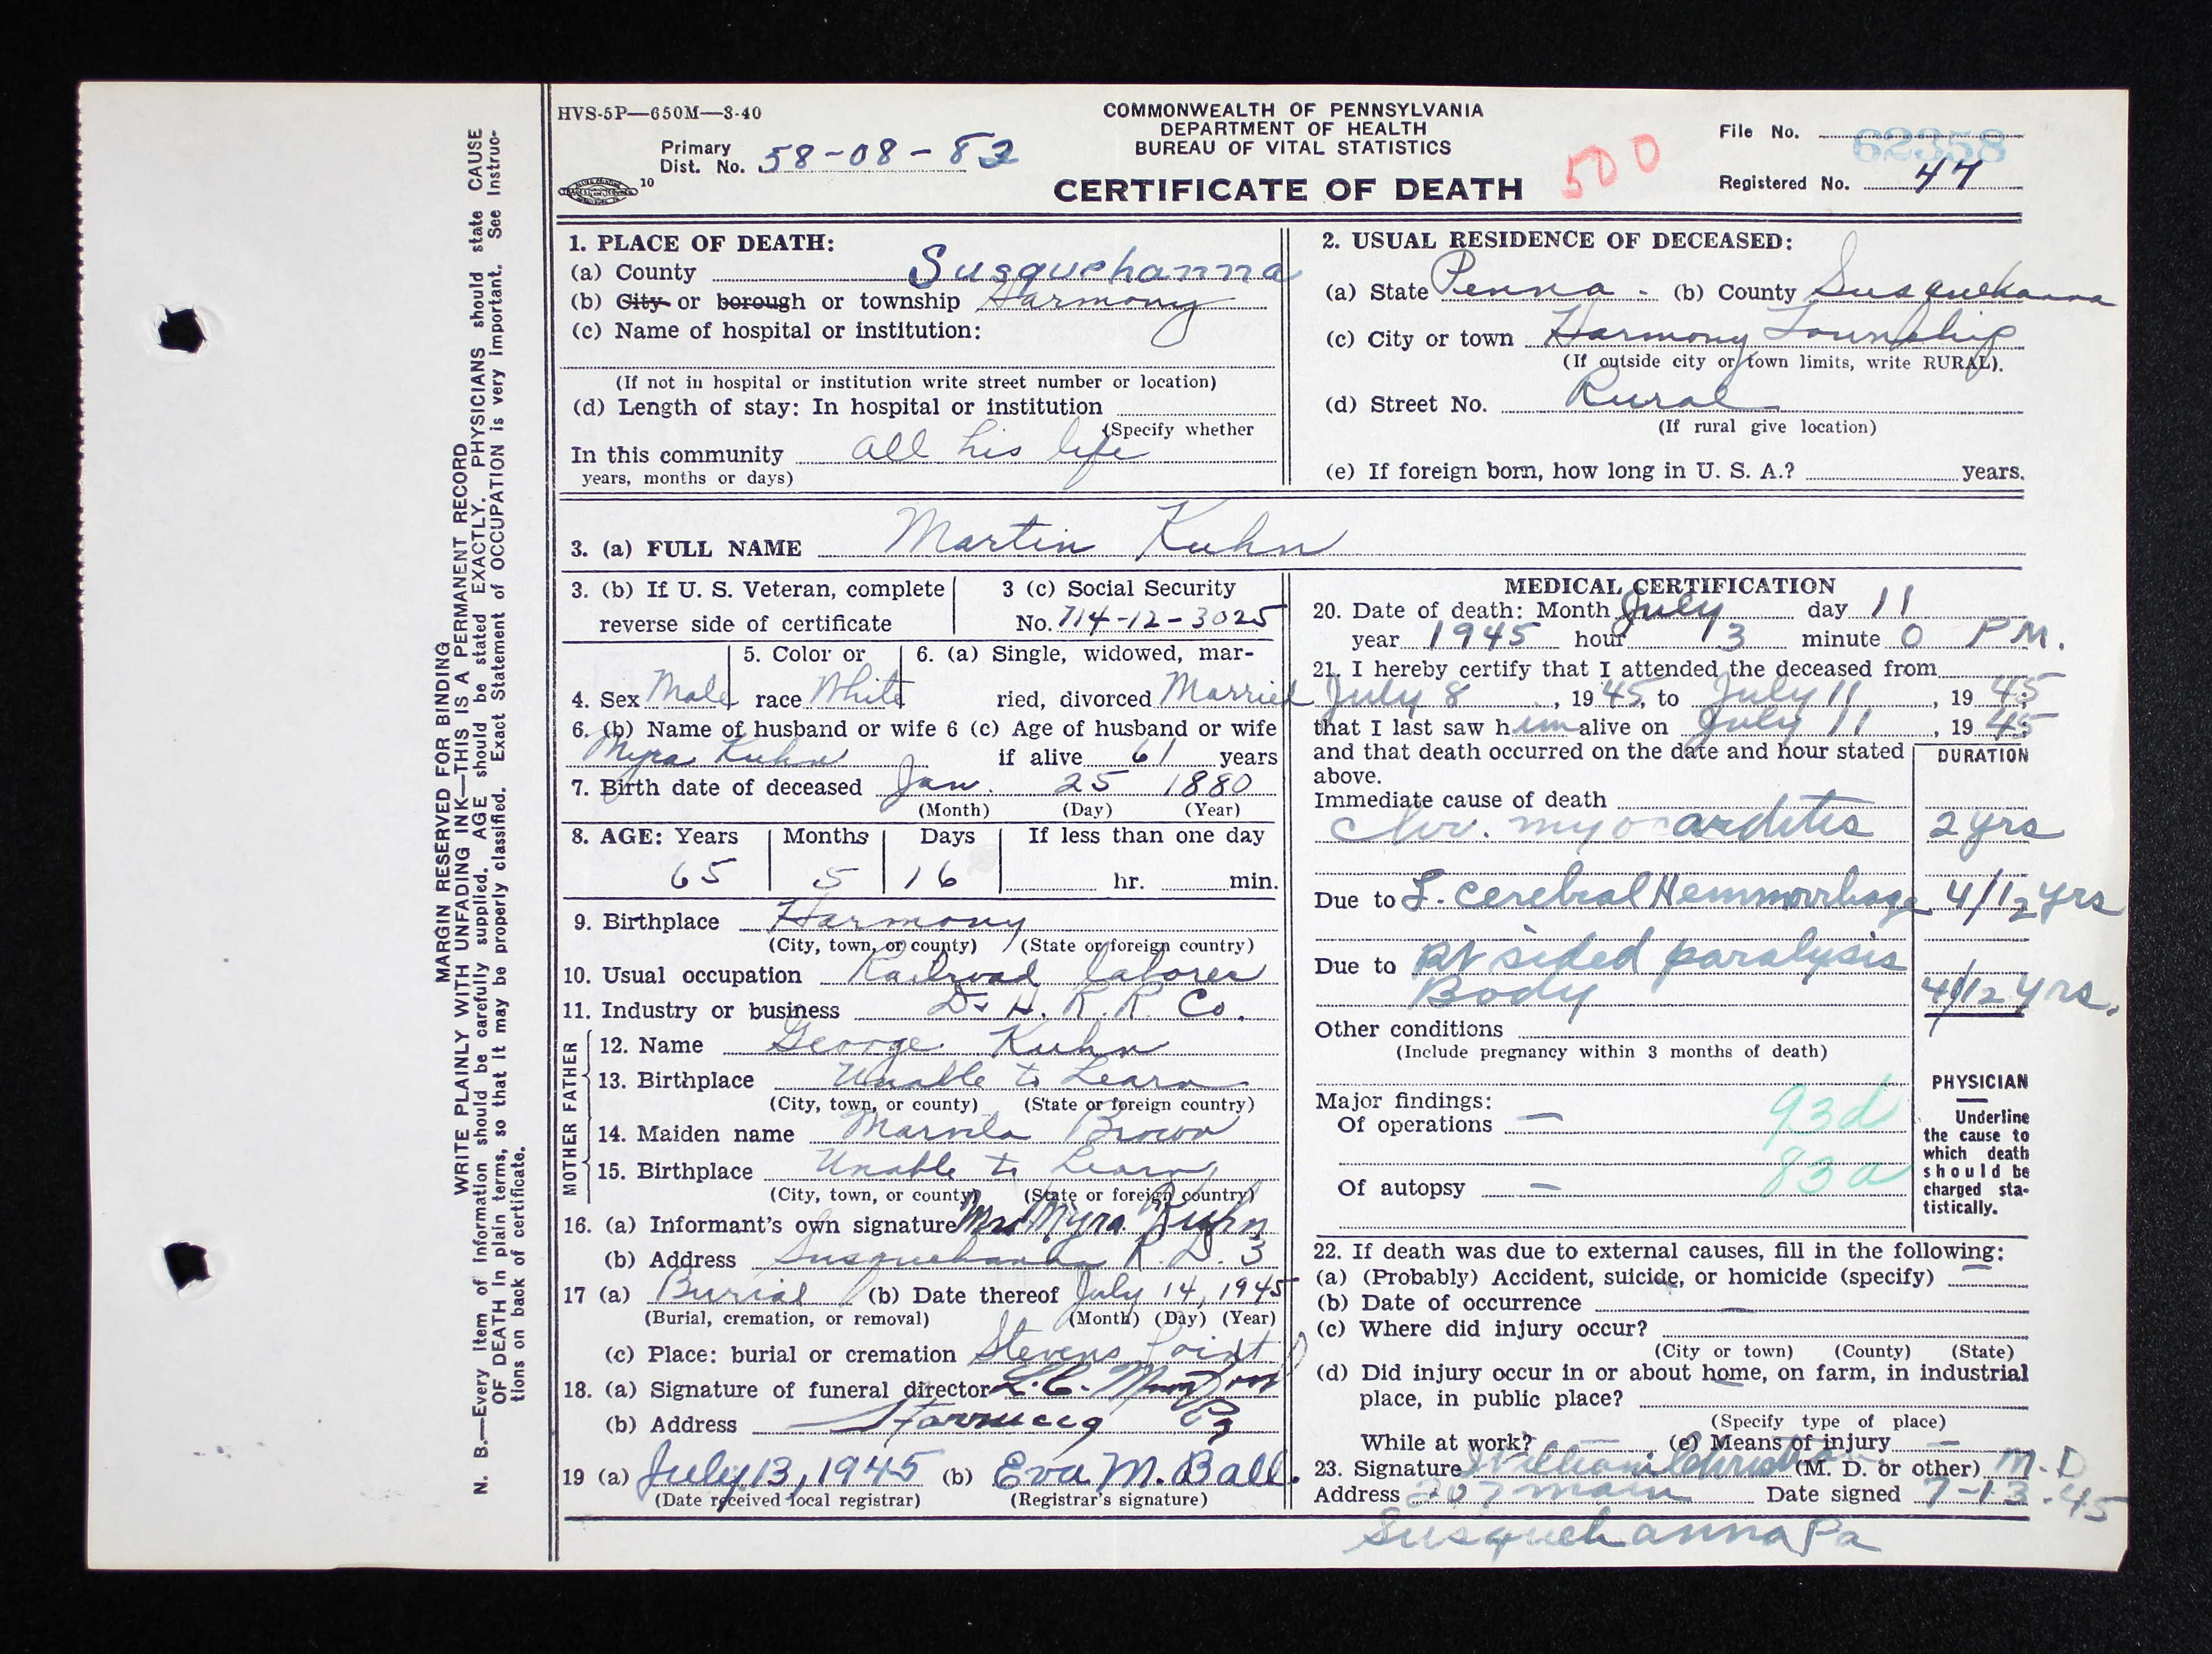 HVS-5P—650M—3-40
COMMONWEALTH OF PENNSYLVANIA
DEPARTMENT OF HEALTH
BUREAU OF VITAL STATISTICS
CERTIFICATE OF DEATH
Primary
Dist. No. 58-08-82
10
500
File No. 62358
Registered No. 47
1. PLACE OF DEATH:
(a) County Susquehanna
(b) City or borough or township Harmony
(c) Name of hospital or institution:
(If not in hospital or institution write street number or location)
(d) Length of stay: In hospital or institution
(Specify whether
In this community all his life
years, months or days)
2. USUAL RESIDENCE OF DECEASED:
(a) State Penna. (b) County Susquehanna
(c) City or town Harmony Township
(If outside city or town limits, write RURAL).
(d) Street No. Rural
(If rural give location)
(e) If foreign born, how long in U. S. A.? years.
3. (a) FULL NAME Martin Kuhn
3. (b) If U. S. Veteran, complete
reverse side of certificate
3 (c) Social Security
No. 714-12-3025
4. Sex Male
5. Color or
race White
6. (a) Single, widowed, mar-
ried, divorced Married
6. (b) Name of husband or wife 6 (c) Age of husband or wife
Myra Kuhn if alive 61 years
7. Birth date of deceased Jan. 25 1880
(Month) (Day) (Year)
8. AGE: Years Months Days If less than one day
65 5 16 hr. min.
9. Birthplace Harmony
(City, town, or county) (State or foreign country)
10. Usual occupation Railroad laborer
11. Industry or business D & H. R. R. Co.
FATHER
12. Name George Kuhn
13. Birthplace Unable to Learn
(City, town, or county) (State or foreign country)
MOTHER
14. Maiden name Marvila Brown
15. Birthplace Unable to Learn
(City, town, or county) (State or foreign country)
16. (a) Informant's own signature Mrs Myra Kuhn
(b) Address Susquehanna R. D. 3
17 (a) Burial (b) Date thereof July 14, 1945
(Burial, cremation, or removal) (Month) (Day) (Year)
(c) Place: burial or cremation Stevens Point
18. (a) Signature of funeral director L. C.
(b) Address Starrucca Pa
19 (a) July 13, 1945 (b) Eva M. Ball.
(Date received local registrar) (Registrar's signature)
MEDICAL CERTIFICATION
20. Date of death: Month July day 11
year 1945 hour 3 minute 0 P M.
21. I hereby certify that I attended the deceased from
July 8, 1945, to July 11, 1945;
that I last saw him alive on July 11, 1945;
and that death occurred on the date and hour stated
above.
DURATION
Immediate cause of death
Chr. myocarditis 2 yrs
Due to L. cerebral Hemmorrhage 4/12 yrs
Due to Rt sided paralysis
Body 4/12 yrs.
Other conditions
(Include pregnancy within 3 months of death)
Major findings:
Of operations — 93d
83a
Of autopsy —
PHYSICIAN
Underline
the cause to
which death
should be
charged sta-
tistically.
22. If death was due to external causes, fill in the following:
(a) (Probably) Accident, suicide, or homicide (specify) —
(b) Date of occurrence —
(c) Where did injury occur?
(City or town) (County) (State)
(d) Did injury occur in or about home, on farm, in industrial
place, in public place?
(Specify type of place)
While at work? (e) Means of injury —
23. Signature William (M. D. or other) M. D
Address 207 Main Date signed 7-13-45
Susquehanna Pa
MARGIN RESERVED FOR BINDING
WRITE PLAINLY WITH UNFADING INK—THIS IS A PERMANENT RECORD
N. B.—Every item of information should be carefully supplied. AGE should be stated EXACTLY. PHYSICIANS should state CAUSE
OF DEATH in plain terms, so that it may be properly classified. Exact Statement of OCCUPATION is very important. See Instruc-
tions on back of certificate.